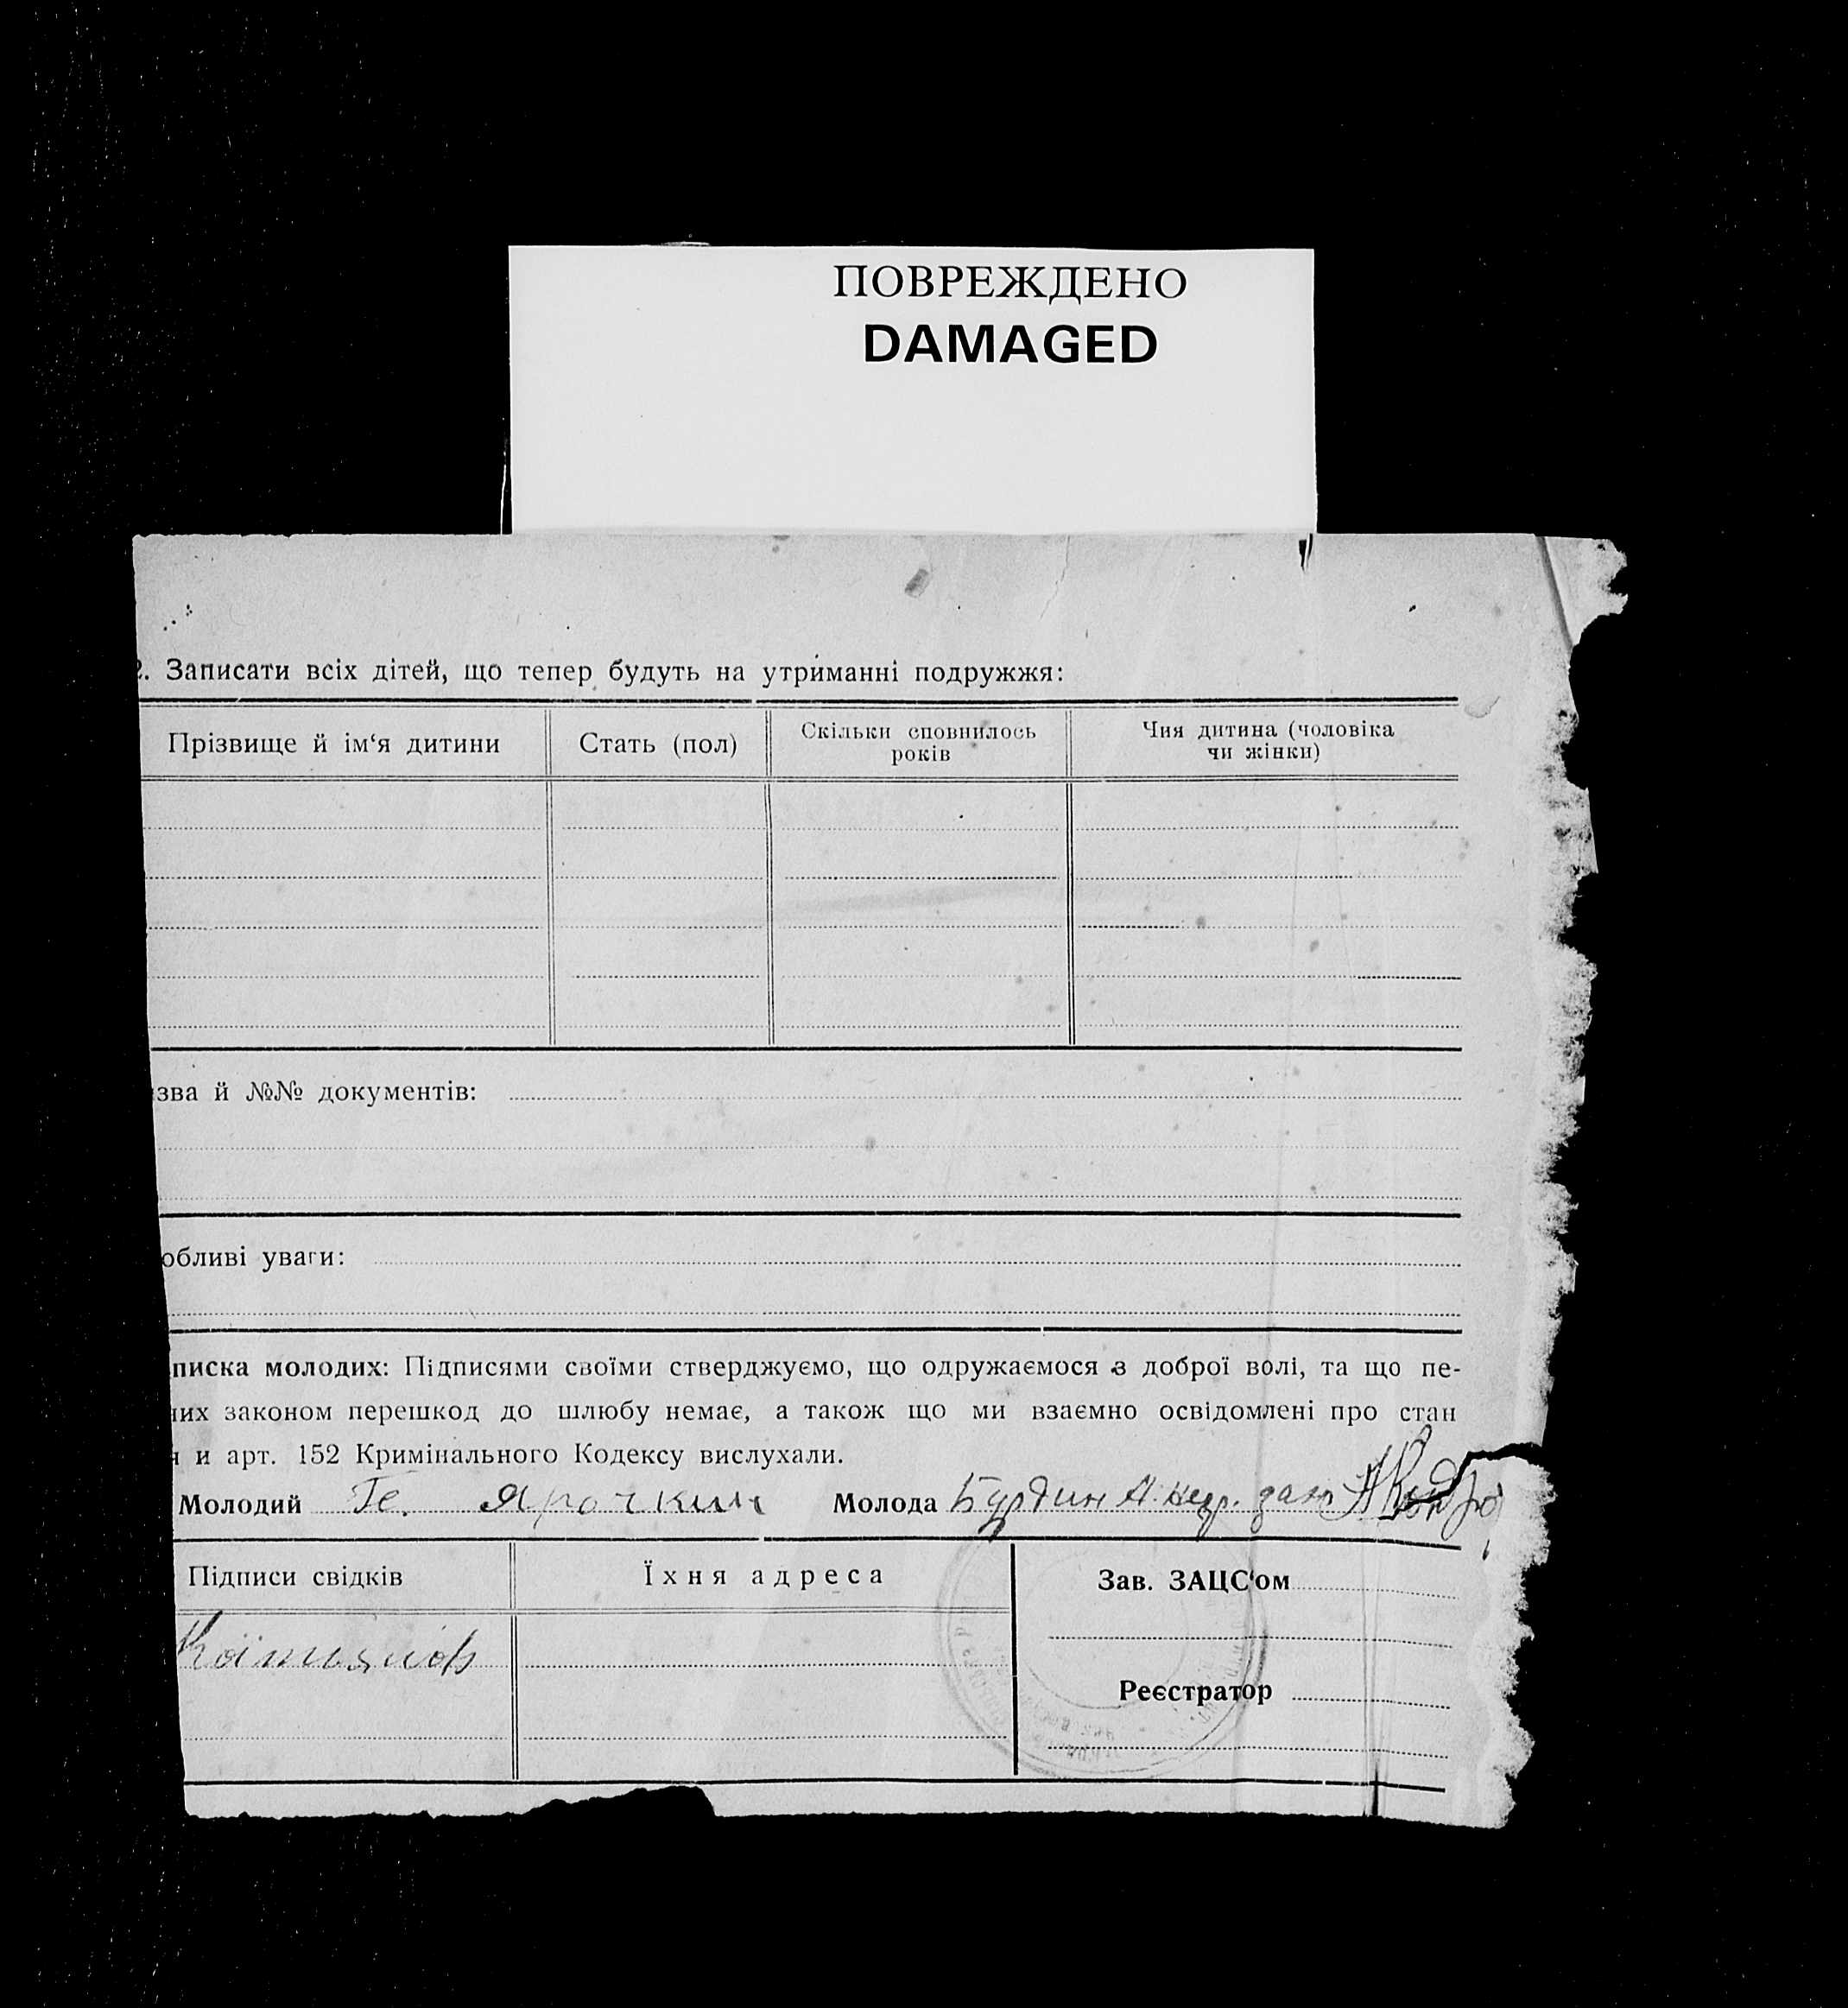 ПОВРЕЖДЕНО
DAMAGED
2. Записати всіх дітей, що тепер будуть на утриманні подружжя:
Прізвище й ім‘я дитини
Стать (пол)
Скільки сповнилось
років
Чия дитина (чоловіка
чи жінки)
зва й №№ документів:
обливі уваги:
писка молодих: Підписями своїми стверджуємо, що одружаємося з доброї волі, та що пе-
них законом перешкод до шлюбу немає, а також що ми взаємно освідомлені про стан
и арт. 152 Кримінального Кодексу вислухали.
Молодий Ге. Ярочкин Молода Бурдин
Підписи свідків
Їхня адреса
Зав. ЗАЦС‘ом
Реєстратор